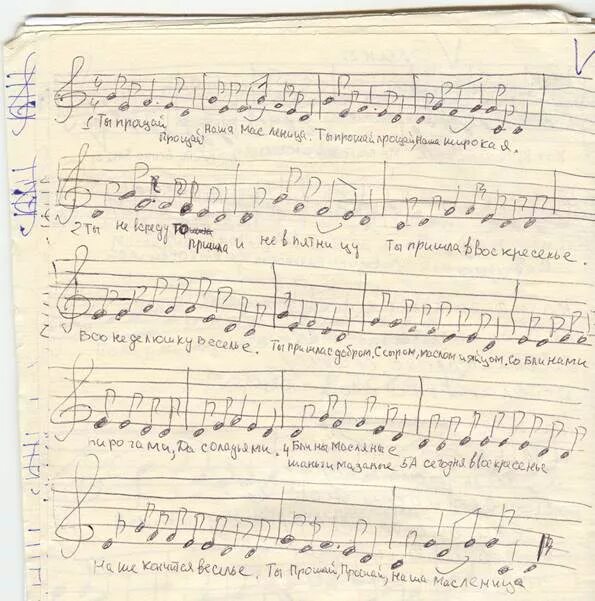 1 Ты прощай наша масленица. Ты прощай прощай, наша широкая.
Прощай
2 Ты не в среду пришла и не в пятницу Ты пришла в воскресенье.
Всю неделюшку веселье. Ты пришла с добром, с сыром, маслом и яйцом, со блинами
пирогами, да соладьями. 4 Блины масляные
шаньги мазаные 5 А сегодня в воскресенье
Наше кончится веселье. Ты Прощай, Прощай, наша масленица